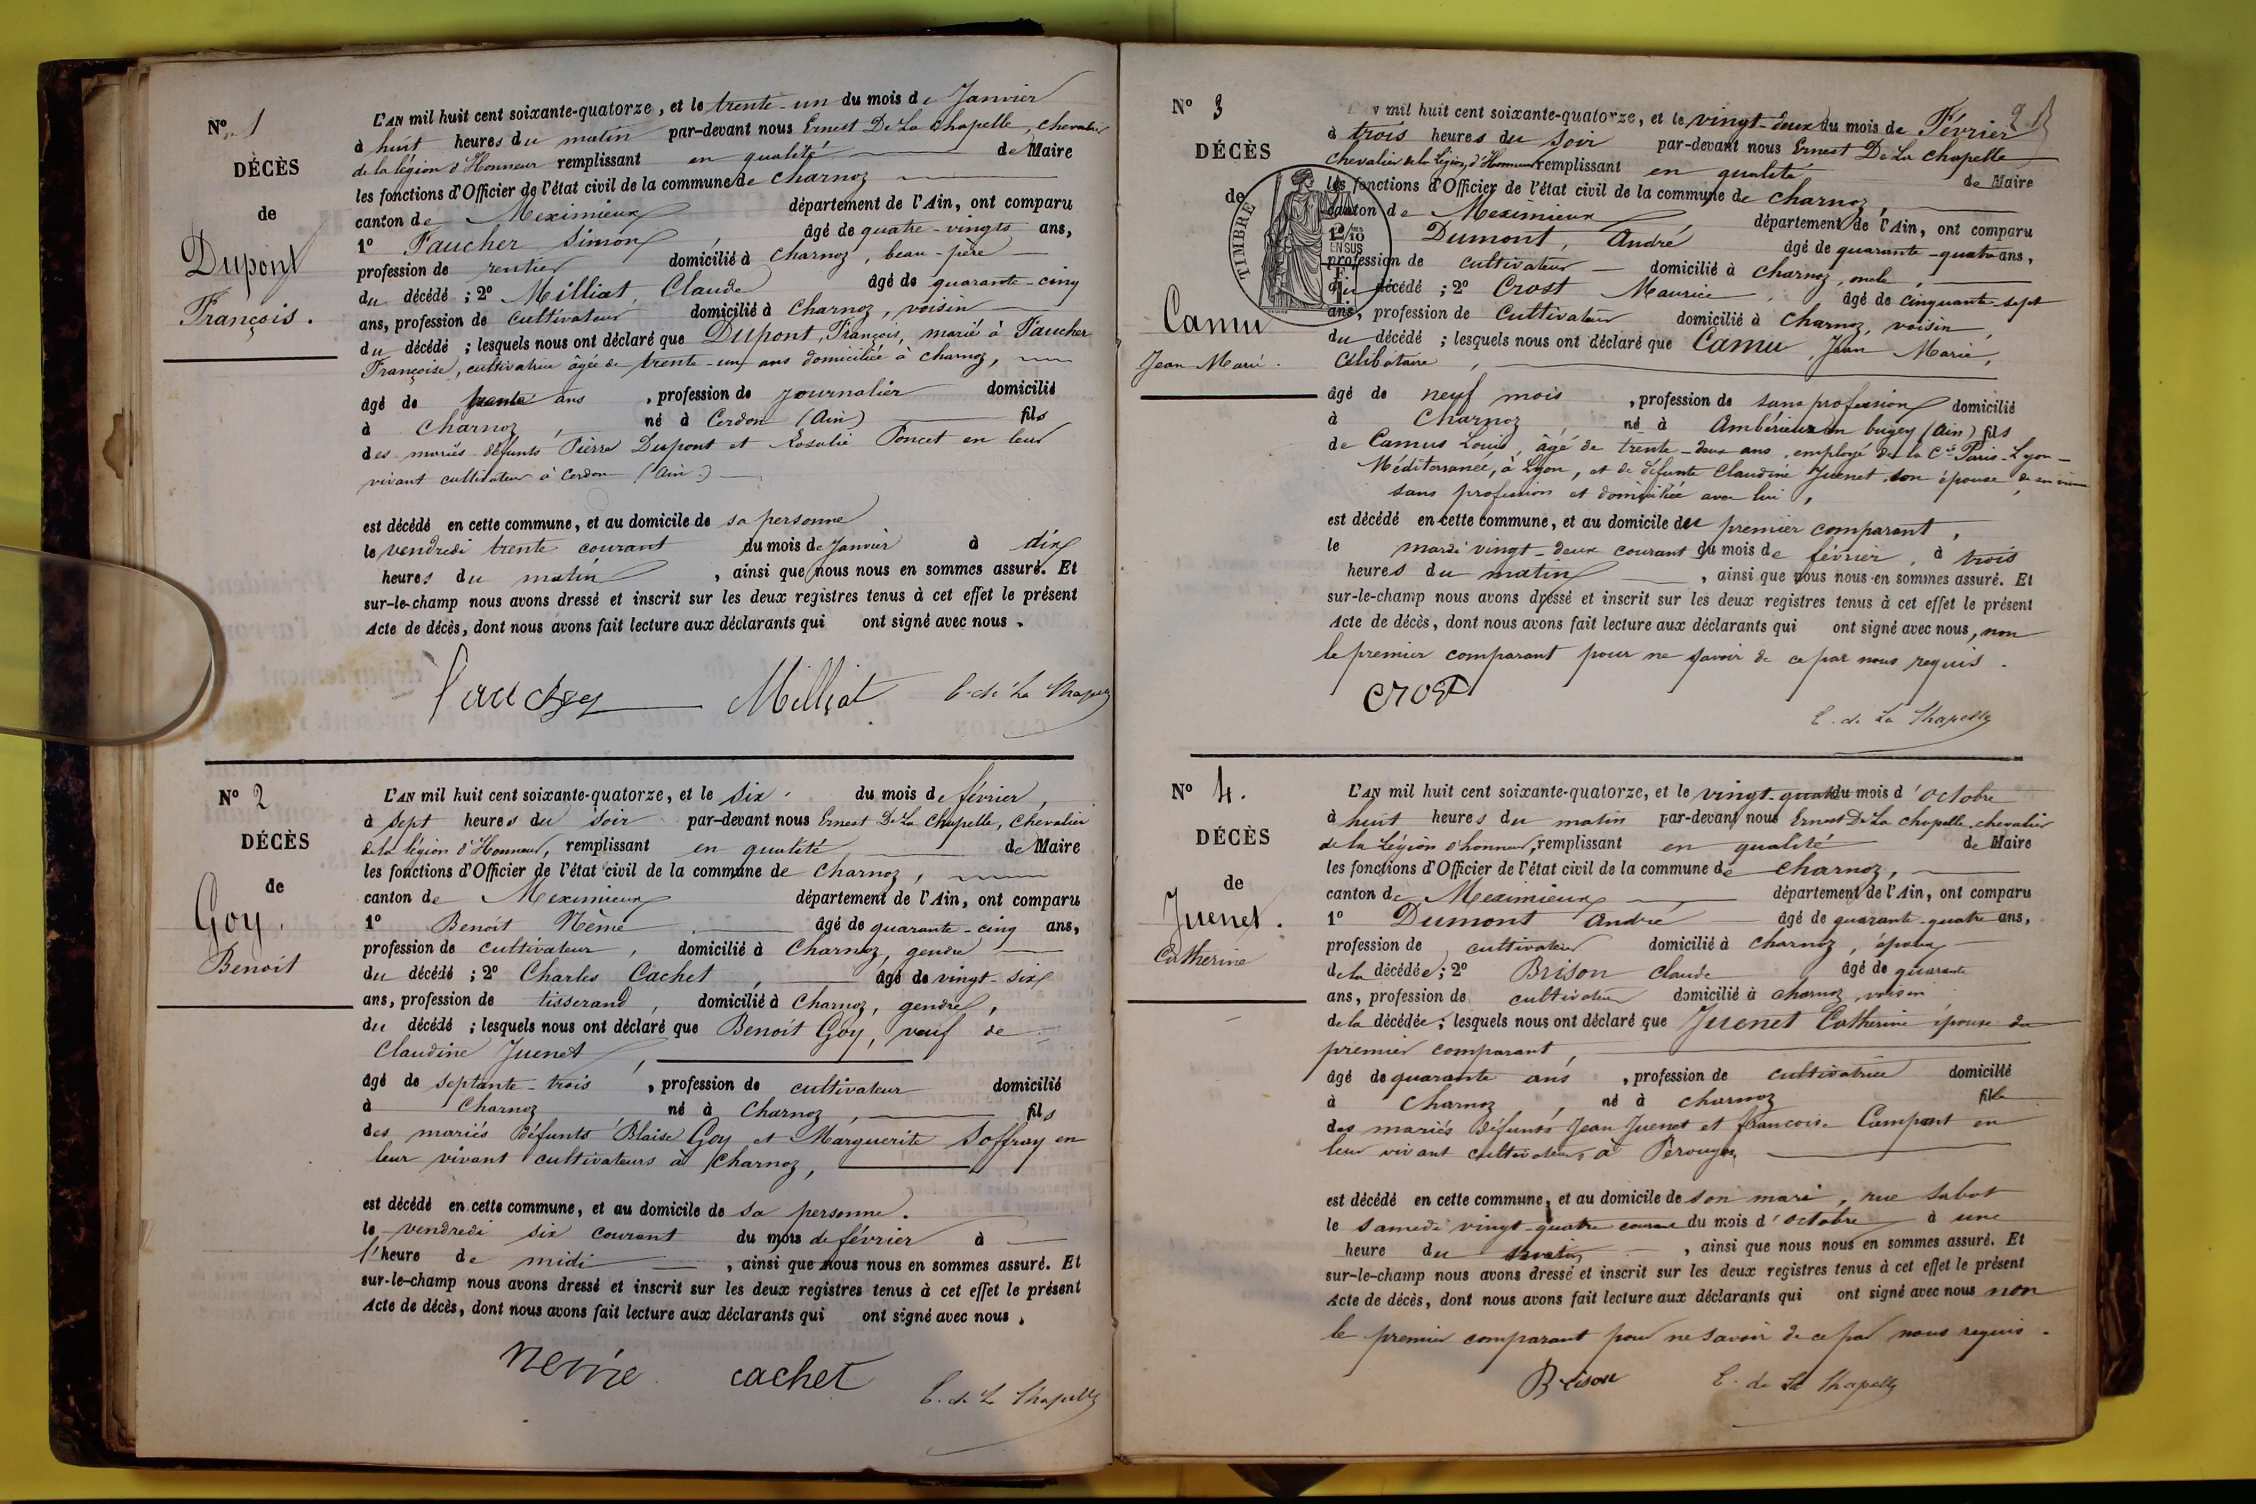 N° 1
DÉCÈS
de
Dupont
François.
L'AN mil huit cent soixante-quatorze, et le trente-un du mois de Janvier
à huit heures du matin par-devant nous Ernest De La Chapelle, chevalier
de la légion d'Honneur remplissant en qualité de Maire
les fonctions d'Officier de l'état civil de la commune de Charnoz
canton de Meximieux département de l'Ain, ont comparu
1° Faucher Simon, âgé de quatre-vingts ans,
profession de rentier domicilié à Charnoz, beau-père
du décédé ; 2° Milliat, Claude âgé de quarante-cinq
ans, profession de cultivateur domicilié à Charnoz, voisin
du décédé ; lesquels nous ont déclaré que Dupont, François, marié à Faucher
Françoise, cultivatrice âgée de trente-un ans domiciliée à Charnoz,
âgé de trente ans, profession de journalier domicilié
à Charnoz, né à Cerdon (Ain) fils
des mariés défunts Pierre Dupont et Rosalie Poncet en leur
vivant cultivateur à Cerdon (Ain)
est décédé en cette commune, et au domicile de sa personne
le vendredi trente courant du mois de Janvier à dix
heures du matin, ainsi que nous nous en sommes assuré. Et
sur-le-champ nous avons dressé et inscrit sur les deux registres tenus à cet effet le présent
Acte de décès, dont nous avons fait lecture aux déclarants qui ont signé avec nous.
faucher Milliat E. de La Chapelle
N° 2
DÉCÈS
de
Goy.
Benoit
L'AN mil huit cent soixante-quatorze, et le six du mois de février,
à sept heures du soir par-devant nous Ernest De La Chapelle, Chevalier
de la légion d'Honneur, remplissant en qualité de Maire
les fonctions d'Officier de l'état civil de la commune de Charnoz,
canton de Meximieux département de l'Ain, ont comparu
1° Benoit Nême âgé de quarante-cinq ans,
profession de cultivateur, domicilié à Charnoz, gendre
du décédé ; 2° Charles Cachet, âgé de vingt-six
ans, profession de tisserand, domicilié à Charnoz, gendre,
du décédé ; lesquels nous ont déclaré que Benoit Goy, veuf de
Claudine Juenet,
âgé de septante-trois, profession de cultivateur domicilié
à Charnoz né à Charnoz, fils
des mariés défunts Blaise Goy et Marguerite Soffray en
leur vivant cultivateurs à Charnoz,
est décédé en cette commune, et au domicile de sa personne.
le vendredi six courant du mois de février à
l'heure de midi, ainsi que nous nous en sommes assuré. Et
sur-le-champ nous avons dressé et inscrit sur les deux registres tenus à cet effet le présent
Acte de décès, dont nous avons fait lecture aux déclarants qui ont signé avec nous.
cachet E. de La Chapelle
N° 3
DÉCÈS
de
TIMBRE
2/10
EN SUS
Camu
Jean Marie.
mil huit cent soixante-quatorze, et le vingt-deux du mois de Février
à trois heures du soir par-devant nous Ernest De La Chapelle
chevalier de la Légion d'Honneur remplissant en qualité de Maire
les fonctions d'Officier de l'état civil de la commune de Charnoz,
canton de Meximieux, département de l'Ain, ont comparu
1° Dumont, André âgé de quarante-quatre ans,
profession de cultivateur domicilié à Charnoz, oncle,
du décédé ; 2° Crost Maurice, âgé de cinquante-sept
ans, profession de cultivateur domicilié à Charnoz, voisin,
du décédé ; lesquels nous ont déclaré que Camu, Jean Marie,
Célibataire,
âgé de neuf mois, profession de sans profession domicilié
à Charnoz, né à Ambérieux en bugey (Ain) fils
de Camus Louis, âgé de trente-deux ans, employé de la Cie Paris-Lyon-
Méditerranée, à Lyon, et de défunte Claudine Juenet son épouse de son vivant
sans profession et domiciliée avec lui,
est décédé en cette commune, et au domicile du premier comparant,
le mardi vingt-deux courant du mois de février, à trois
heures du matin, ainsi que nous nous en sommes assuré. Et
sur-le-champ nous avons dressé et inscrit sur les deux registres tenus à cet effet le présent
Acte de décès, dont nous avons fait lecture aux déclarants qui ont signé avec nous, non
le premier comparant pour ne savoir de ce par nous requis.
crost
E. de La Chapelle
N° 4.
DÉCÈS
de
Juenet.
Catherine
L'AN mil huit cent soixante-quatorze, et le vingt-quatre du mois d'octobre
à huit heures du matin par-devant nous Ernest De La Chapelle chevalier
de la Légion d'honneur, remplissant en qualité de Maire
les fonctions d'Officier de l'état civil de la commune de Charnoz,
canton de Meximieux département de l'Ain, ont comparu
1° Dumont André âgé de quarante-quatre ans,
profession de cultivateur domicilié à Charnoz, époux
de la décédée ; 2° Brison Claude âgé de quarante
ans, profession de cultivateur domicilié à Charnoz voisin
de la décédée ; lesquels nous ont déclaré que Juenet Catherine épouse du
premier comparant,
âgé de quarante ans, profession de cultivatrice domicilié
à Charnoz, né à Charnoz fille
des mariés défunts Jean Juenet et françoise Campant en
leur vivant cultivateurs à Pérouges
est décédé en cette commune, et au domicile de son mari, rue Sabot
le samedi vingt-quatre courant du mois d'octobre à une
heure du matin, ainsi que nous nous en sommes assuré. Et
sur-le-champ nous avons dressé et inscrit sur les deux registres tenus à cet effet le présent
Acte de décès, dont nous avons fait lecture aux déclarants qui ont signé avec nous non
le premier comparant pour ne savoir de ce par nous requis.
Brison E. de La Chapelle